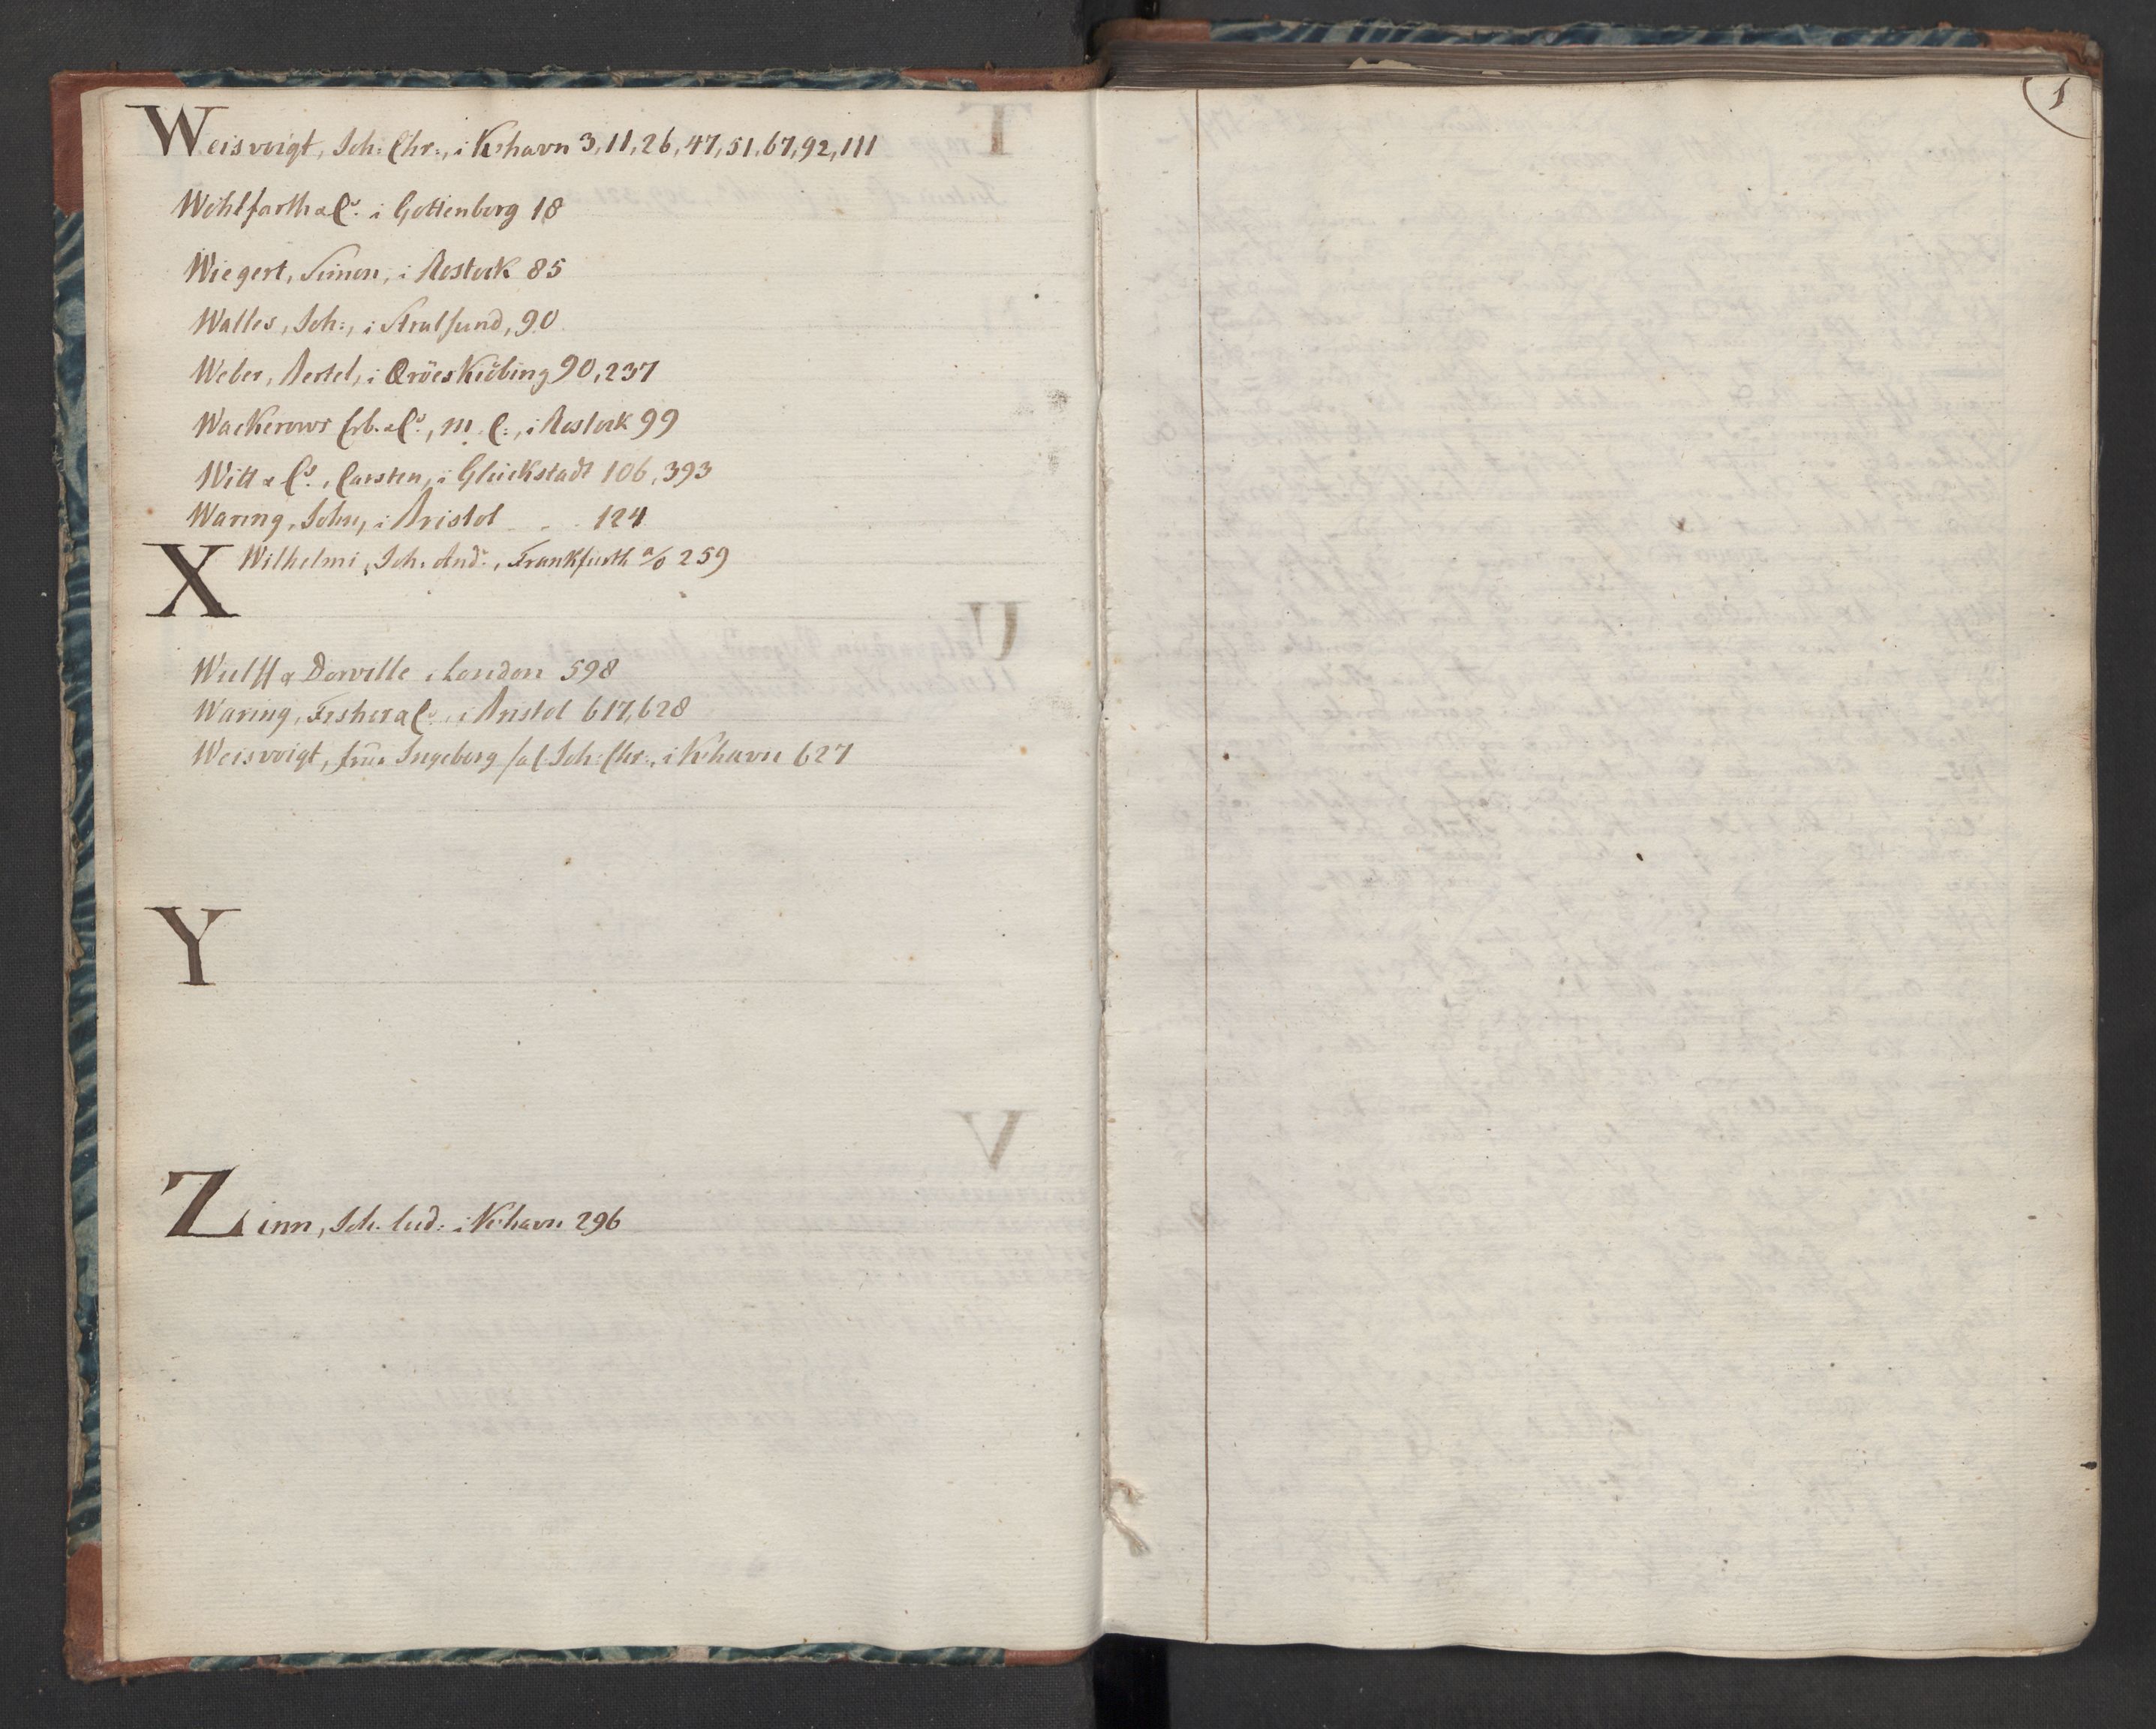 Weisvoigt, Joh: Chr:, i K:havn 3, 11, 26, 47, 51, 67, 92, 111
Wohlfarth & Co. i Gottenborg 18
Wiegert, Simon, i Rostock 85
Walles, Joh:, i Stralsund, 90
Weber, Bertel, i Æröeskiöbing 90, 237
Wackerows Erb. & Co., M. C:, i Rostock 99
Witt & Co., Carsten, i Glückstadt 106, 393
Waring, John, i Bristol 124
X
Wilhelmi, Joh. And:, Frankfurth a/o 259
Wulff & Dorville i London 598
Waring, Fisher & Co., i Bristol 617, 628
Weisvoigt, frue Ingeborg sal: Joh: Chr:, i K:havn 627
Y
Zinn, Joh. Lud: i K:havn 296
1